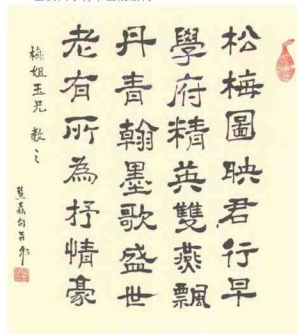 松梅圖映君行早
學府精英雙燕飄
丹青翰墨歌盛世
老有所為抒情豪
梅姐玉兄 教之